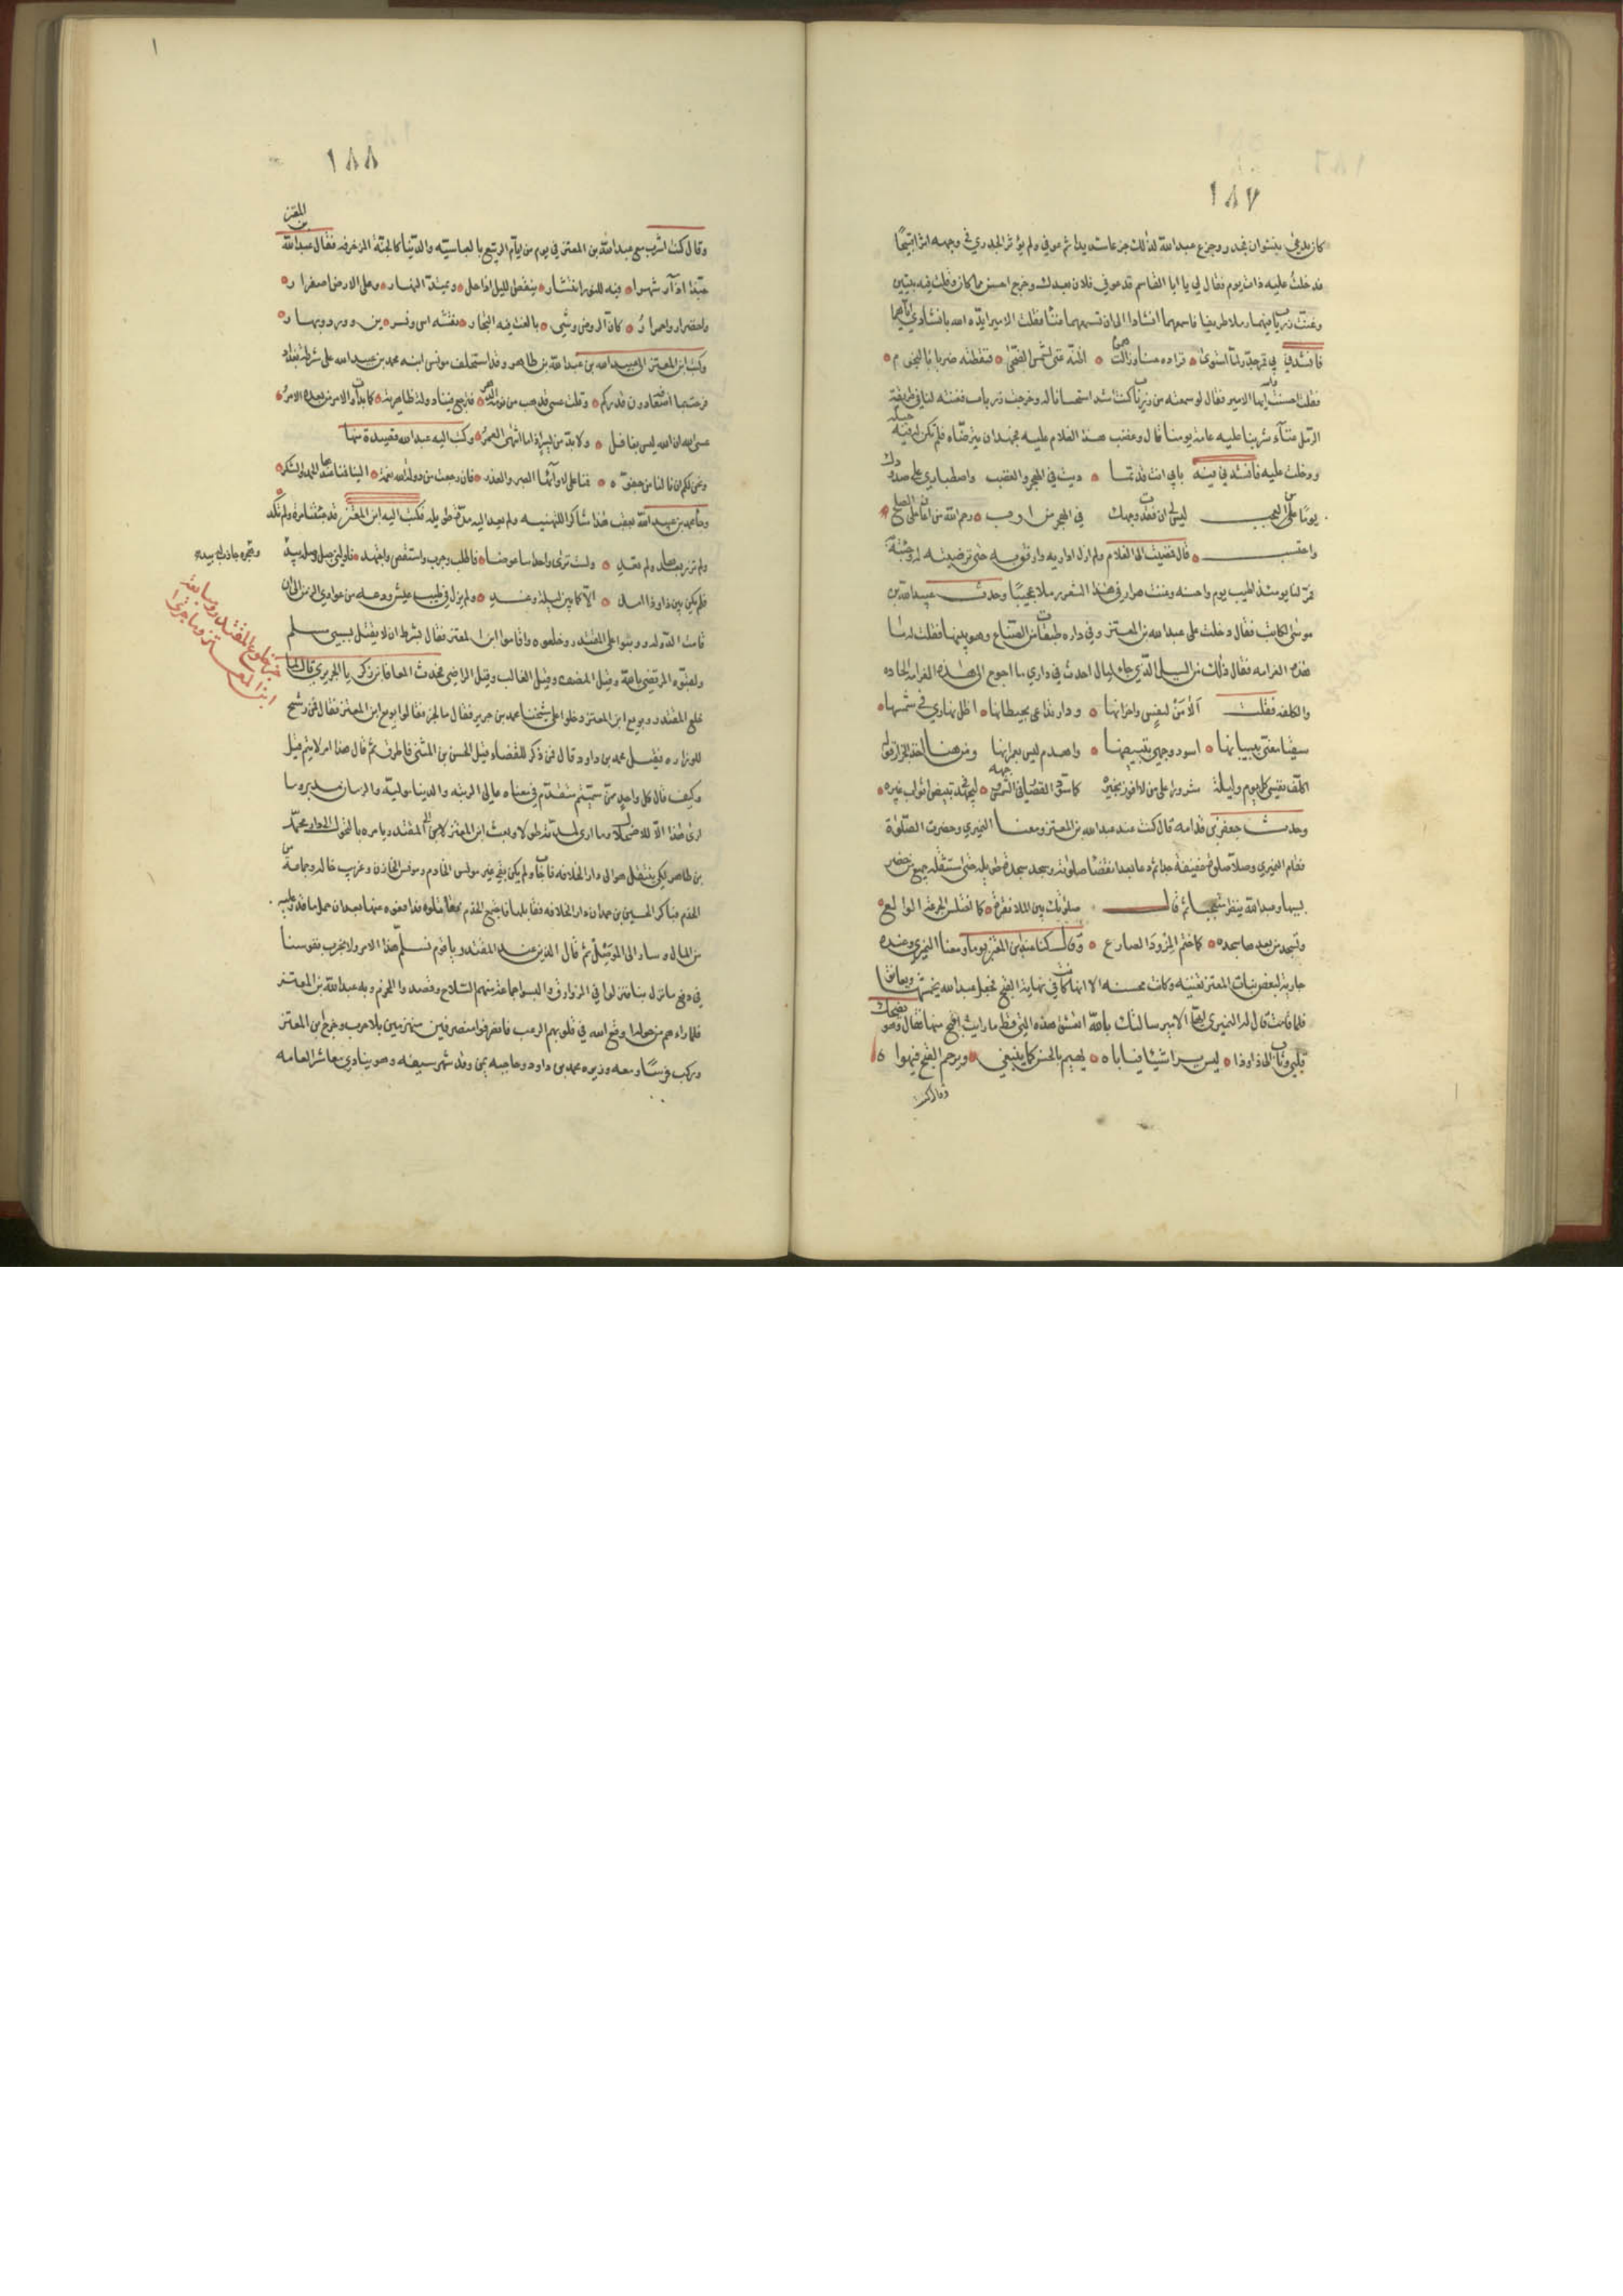 ١٨٧
كان يدعى بنشوان فجدر وجزع عبدالله لذلك جزعا شديدا ثم عوفي ولم يؤثر الجدري في وجهه اثرا قبيحا
فدخلت عليه ذات يوم فقال لي يا ابا القاسم قد عوفي فلان بعدك وخرج احسن مما كان وقلت فيه بيتين
وغنت زرياب فيهما رملا ظريفا فاسمعهما انشادا الى ان تسمعهما غنا فقلت الامير ايده الله بانشادي اياهما
فانشدني لي قمر جدر لما استوى فزاده حسنا وزالت هموم اظنه غنى لشمس الضحى فنقطته طربا بالنجوم
فقلت احسنت ايها الامير فقال لو سمعته من زرياب كنت اشد استحسانا له وخرجت زرياب فغنته لنا في طريقة
الرمل غناء شربنا عليه عامة يومنا قال وغضب هذا الغلام عليه فجهد ان يترضاه فلم تكن له فيه حيلة
ودخلت عليه فانشدني فيه بابي انت قد تما ديت في الهجر والغضب واصطباري على صدودك
يوما من العجب ليس لي ان فقدت وجهك في العيش من ارب رحم الله من اعان على الصلح
واحتسب قال فمضيت الى الغلام ولم ازل اداريه وارفق به حتى ترضيته له وجئته به
فمر لنا يومئذ اطيب يوم واحسنه وغنت هزار في هذا الشعر رملا عجيبا وحدث عبيدالله بن
موسى الكاتب فقال دخلت على عبدالله بن المعتز وفي داره طبقات من الصناع وهو يبنيها فقلت له ما
هذه الغرامة فقال ذلك من السيل الذي جاء من ليال احدث في داري ما احوج الى هذه الغرامة الحادة
والكلفة فقلت الا من لنفسي واحزانها ودار تداعى بحيطانها اظل نهاري في شمسها
شقيا معنى ببنيانها اسود وجهي بتبييضها واهدم كيسي بعمرانها
وحدث جعفر بن قدامة قال كنت عند عبدالله بن المعتز ومعنا النميري وحضرت الصلوة
فقام النميري وصلى صلوة خفيفة جدا ثم دعا بعد انقضا صلوته وسجد سجدة طويلة حتى استثقله جميع من حضر
بسببها وعبدالله ينظر متعجبا ثم قال صلوتك بين الملا نقرة كما اختلس الجرعة الوالغ
وتسجد من بعدها سجدة كما ختم المزود الفارغ وقال كنا عند ابن المعتز يوما ومعنا النميري وعنده
جارية لبعض بنات المعتز تغنيه وكانت محسنة الا انها كانت في نهاية القبح فجعل عبدالله يجمشها ويعانقها
فلما قامت قال له النميري ايها الامير سالتك بالله اتعشق هذه التي قط ما رايت اقبح منها فقال وهو يضحك
قلبي وثاب الى ذا وذا ليس يرى شيئا فياباه يهيم بالحسن كما ينبغي ويرحم القبح فيهواه
وقال كنت
١٨٨
وقال كنت اشرب مع عبدالله بن المعتز في يوم من ايام الربيع بالعباسية والدنيا كالجنة المزخرفة فقال عبدالله بن المعتز
حبذا اذار شهرا فيه للنور انتشار ينقص الليل اذا حل ويمتد النهار وعلى الارض اصفرار
واخضرار واحمرار كان الروض وشي بالغت فيه التجار نقشه اس ونسرين وورد وبهار
وكتب ابن المعتز الى عبيدالله بن عبدالله بن طاهر وقد استخلف مونس ابنه محمد بن عبيدالله على شرطة بغداد
فرحت بما اضعافه دون قدركم وقلت عسى قد هب من نومه الدهر فترجع فينا دولة طاهرية كما بدأت والامر من بعده الامر
عسى الله ان الله ليس بغافل ولا بد من يسر اذا ما انتهى العسر وكتب اليه عبيدالله قصيدة منها
ونحن لكم ان نالنا مس جفوة فمنا على لاوائها الصبر والعذر فان رجعت من دولة الله نعمة الينا فمنا عندها الحمد والشكر
وجا محمد بن عبيدالله بعقب هذا شاكرا للتهنية ولم يعد اليه مدة طويلة فكتب اليه ابن المعتز قد جئتنا مرة ولم تكد
ولم تزر بعدها ولم تعد ولست ترى واحدا منا عوضا فاطلب وجرب واستقص واجتهد ناولني حبل وصله بيد
وهجره جاذب بيده
فلم يكن بين ذا وذا امد الا كما بين ليلة وغد ولم يزل في طيب عيش ودعة من عوادي الزمن الى ان
قامت الدولة ووثبوا على المقتدر وخلعوه واقاموا ابن المعتز فقال بشرط ان لا يقتل بسببي مسلم
ولقبوه المرتضي بالله وقيل المنصف وقيل الغالب وقيل الراضي فحدث المعافا بن زكريا الجريري قال لما
خلع المقتدر وبويع ابن المعتز دخلوا على شيخنا محمد بن جرير فقال ما الخبر فقالوا بويع ابن المعتز فقال فمن رشح
للوزارة فقيل محمد بن داود قال فمن ذكر للقضاء فقيل الحسن بن المثنى فاطرق ثم قال هذا امر لا يتم قيل
وكيف قال كل واحد ممن سميتم متقدم في معناه عالي الرتبة والدنيا مولية والزمان مدبر وما
ارى هذا الا للاضمحلال وما ارى لمدته طولا وبعث ابن المعتز الى المقتدر يامره بالتحول الى دار محمد
بن طاهر لكي ينتقل هو الى دار الخلافة فاجاب ولم يكن بقي غير مونس الخادم ومونس الخازن وغريب خاله وجماعة من
الخدم فباكر الحسين بن حمدان دار الخلافة فقاتلها
من المال وسار الى الموصل ثم قال الذين عند المقتدر يا قوم نسلم هذا الامر ولا نجرب نفوسنا
في دفع ما نزل بنا فنزلوا في الزوارق والبسوا جماعة منهم السلاح وقصدوا المخرم وبه عبدالله بن المعتز
فلما راءهم من حوله اوقع الله في قلوبهم الرعب فانصرفوا منصرفين منهزمين بلا حرب وخرج ابن المعتز
وركب فرسا ومعه وزيره محمد بن داود وحاجبه يمن وقد شهر سيفه وهو ينادي معاشر العامه